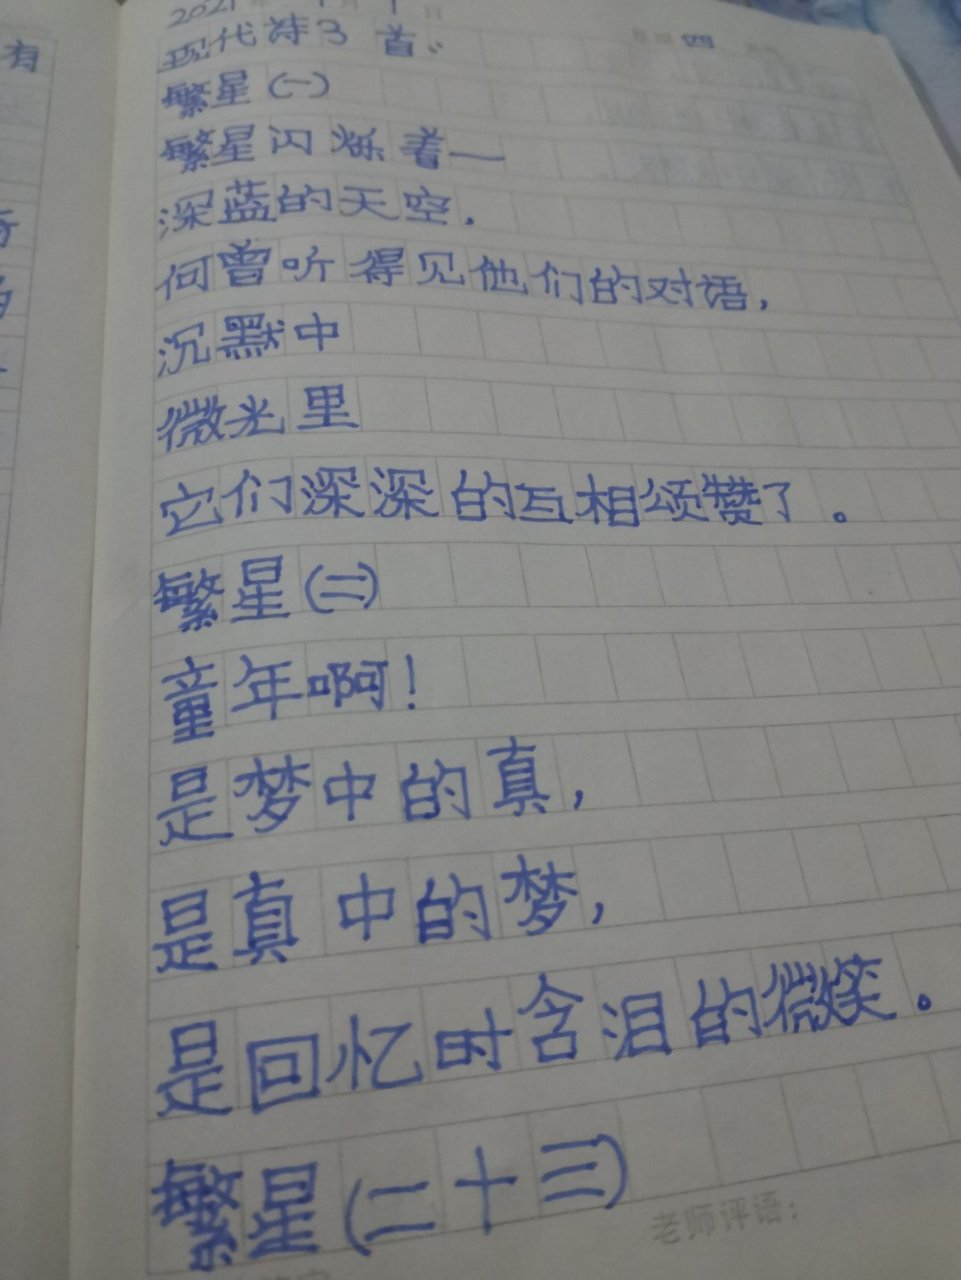 2021
四
现代诗3首。
有
繁星(一)
繁星闪烁着——
深蓝的天空.
何曾听得见他们的对语,
沉默中
微光里
它们深深的互相颂赞了。
繁星(二)
童年啊!
是梦中的真,
是真中的梦,
是回忆时含泪的微笑。
繁星(二十三)
老师评语: